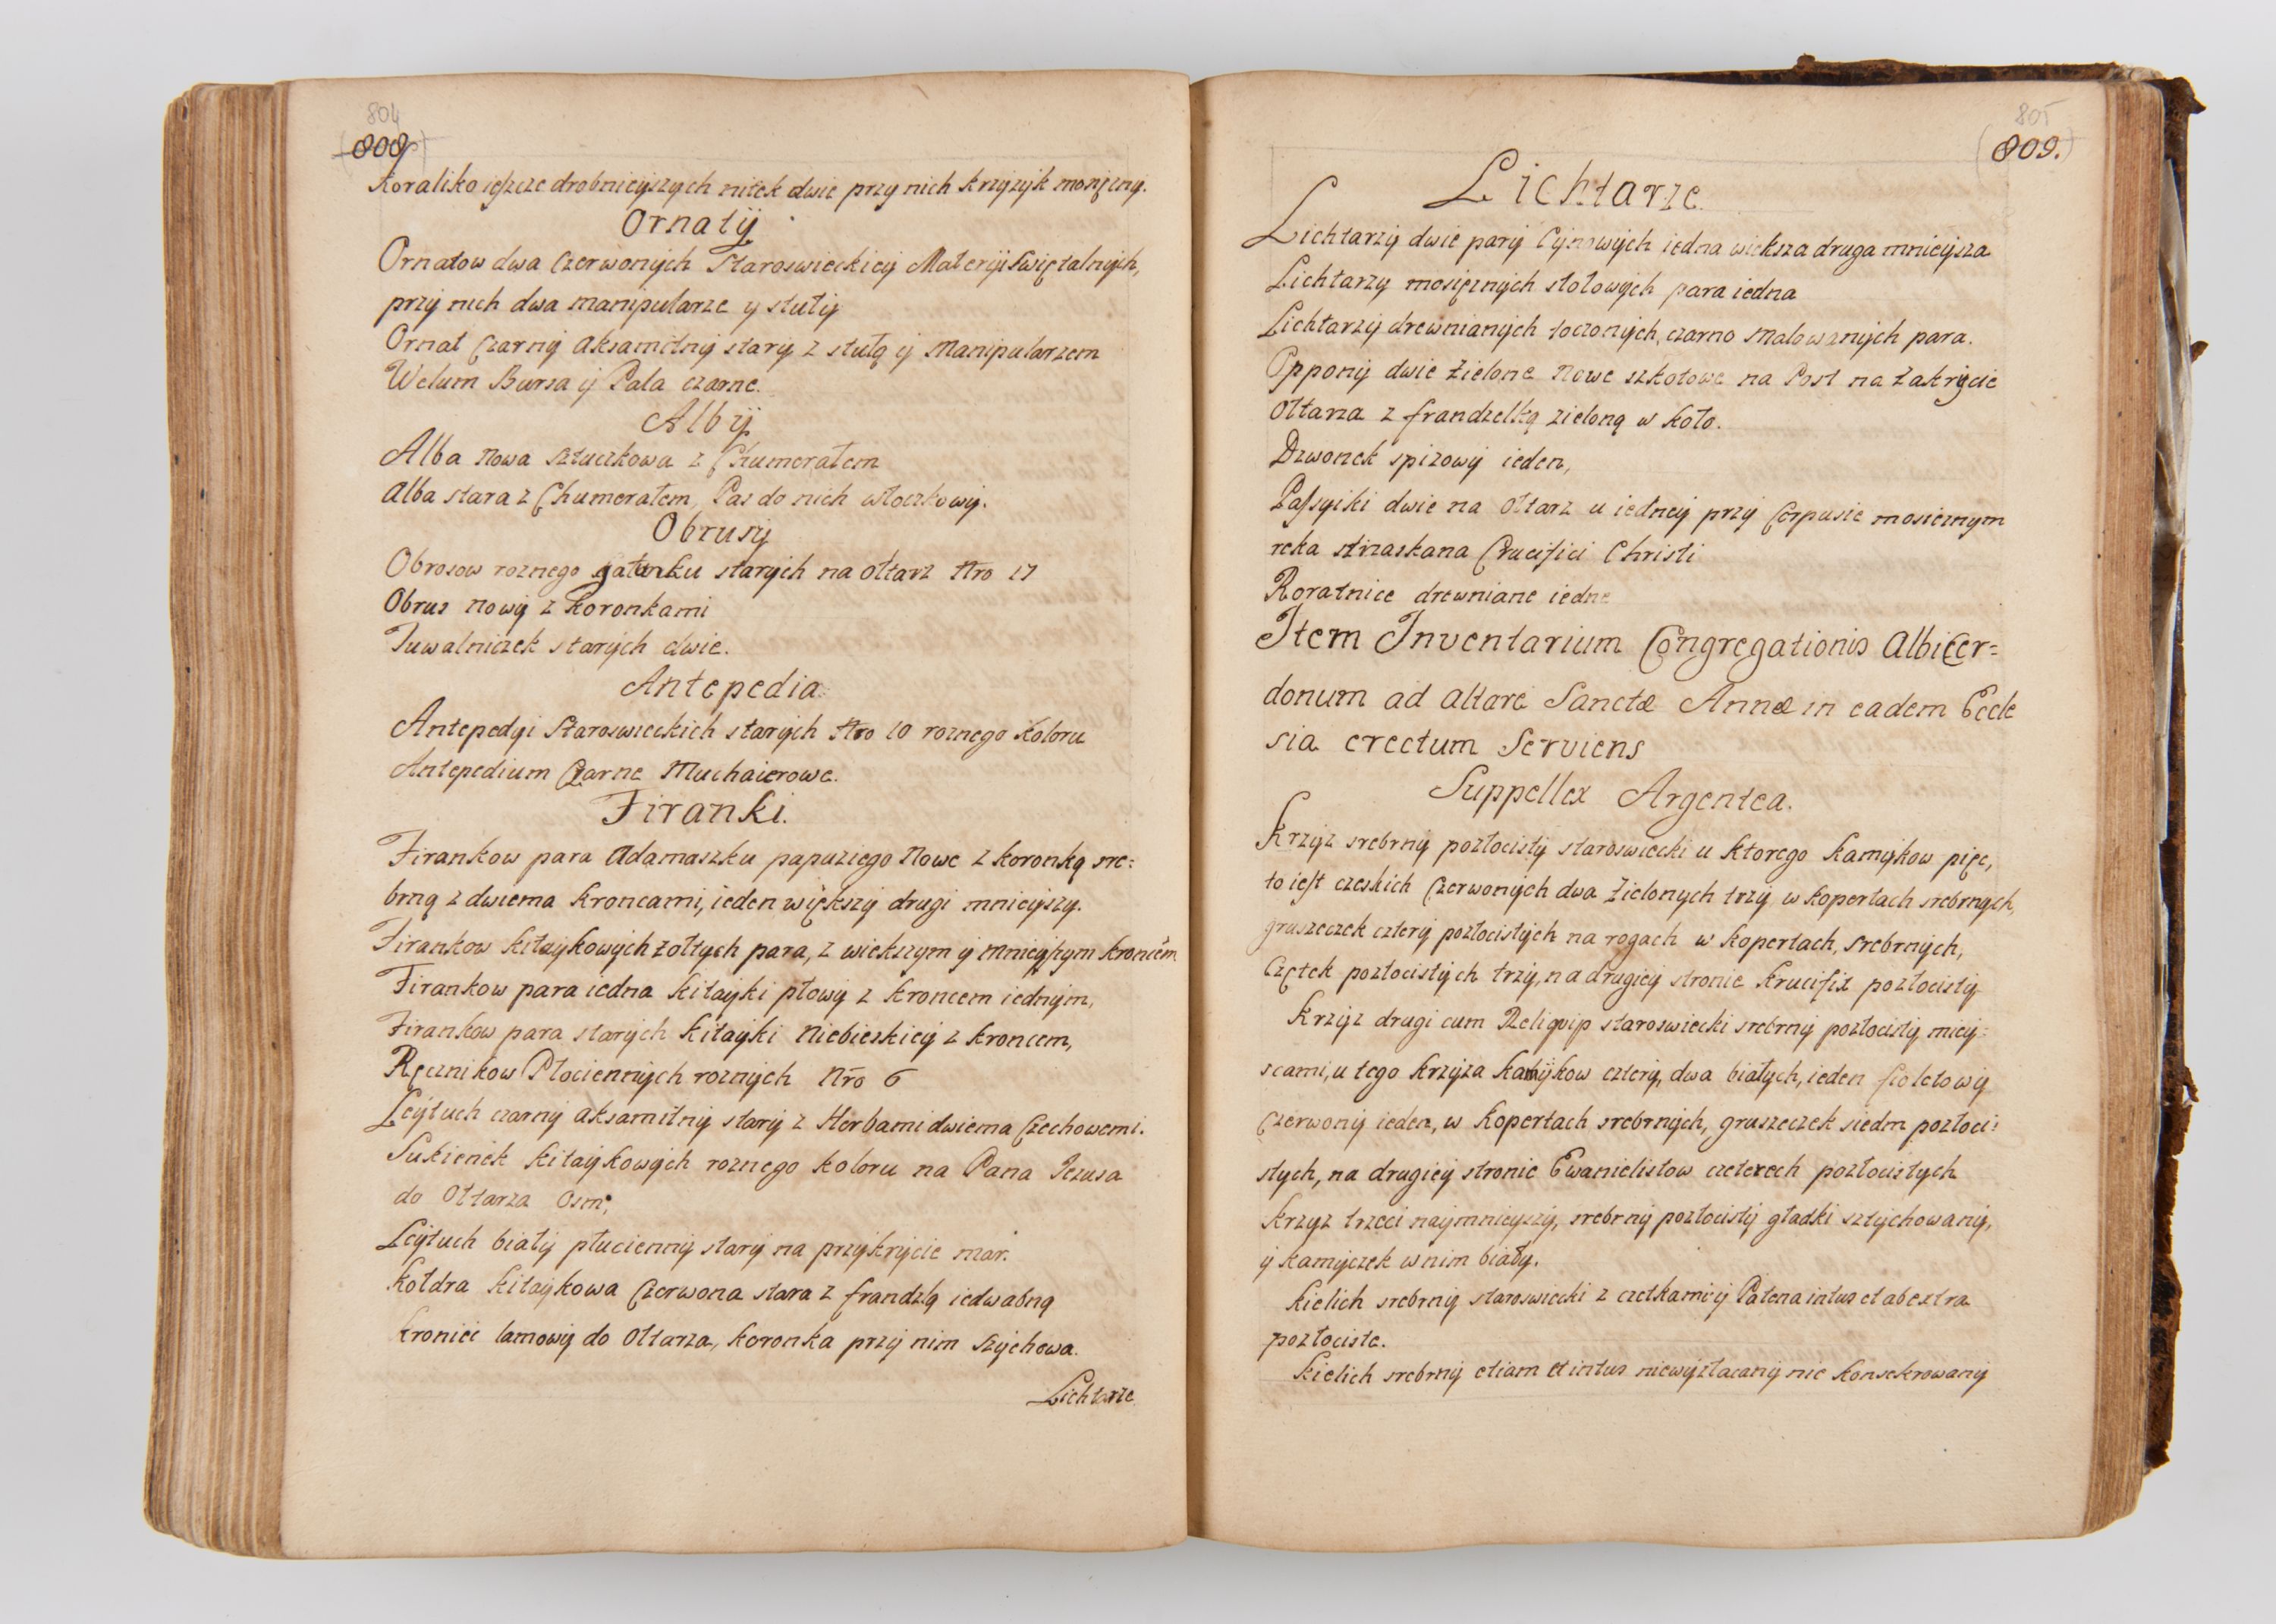 804
808
Koraliko ieszcze drobnieyszych nitek dwie przy nich krzyzyk mosięzny.
Ornaty
Ornatow dwa Czerwonych Staroswieckiey Materyi Swiętalnych,
przy nich dwa manipularze y stuły
Ornat Czarny Aksamitny stary z stułą y Manipularzem
Welum Bursa y Pala czarne.
Alby
Alba Nowa Sztuczkowa z Chumerałem
Alba stara z Chumerałem, Pas do nich włoczkowy.
Obrusy
Obrosow roznego gatunku starych na ołtarz Nro 17
Obrus nowy z koronkami
Tuwalniczek starych dwie.
Antepedia
Antepedyi Staroswieckich starych Nro 10 roznego koloru
Antepedium Czarne Muchaierowe.
Firanki.
Firankow para Adamaszku papuziego Nowe z koronką sre:
brną z dwiema kroncami, ieden większy drugi mnieyszy.
Firankow kitaykowych żołtych para, z wiekszym y mnieyszym kroncem
Firankow para iedna kitayki płowy z kroncem iednym,
Firankow para starych kitayki Niebieskiey z kroncem,
Ręcznikow Płociennych roznych Nro 6
Leytuch czarny aksamitny stary z Herbami dwiema Czechowemi.
Sukienek kitaykowych roznego koloru na Pana Jezusa
do Ołtarza Osm;
Leytuch biały płucienny stary na przykrycie mar.
Kołdra kitaykowa Czerwona stara z frandzlą iedwabną
kroniec lamowy do ołtarza, koronka przy nim szychowa.
Lichtarze
805
809.
Lichtarze
Lichtarzy dwie pary Cynowych iedna wieksza druga mnieysza
Lichtarzy mosięznych stołowych para iedna
Lichtarzy drewnianych toczonych, czarno malowanych para.
Oppony dwie Zielone Nowe szkotowe na Post na Zakrycie
ołtarza z frandzelką zieloną w koło.
Dzwonek spizowy ieden,
Passyiki dwie na ołtarz u iedney przy Corpusie mosieznym
reka strzaskana Crucifici Christi
Roratnice drewniane iedne
Item Inventarium Congregationis Albicer=
donum ad altare Sanctæ Annæ in eadem Eccle
sia erectum Serviens
Suppellex Argentea.
Krzyz srebrny pozłocisty staroswiecki u ktorego kamykow pięc,
to iest czeskich Czerwonych dwa Zielonych trzy w kopertach srebrnych,
gruszeczek cztery pozłocistych na rogach w kopertach, srebrnych,
Czętek pozłocistych trzy, na drugiey stronie krucifix pozłocisty
Krzyz drugi cum Reliquip staroswiecki srebrny pozłocisty miey:
scami, u tego krzyza kamykow cztery, dwa białych, ieden fioletowy
Czerwony ieden, w kopertach srebrnych, gruszeczek siedm pozłoci:
stych, na drugiey stronie Ewanielistow czterech pozłocistych
Krzyz trzeci naymnieyszy, srebrny pozłocisty gładki sztychowany,
y kamyczek w nim biały.
Kielich srebrny staroswiecki z czetkami y Patena intus et ab extra
pozłociste.
Kielich srebrny etiam et intus niewyzłacany nie konsekrowany